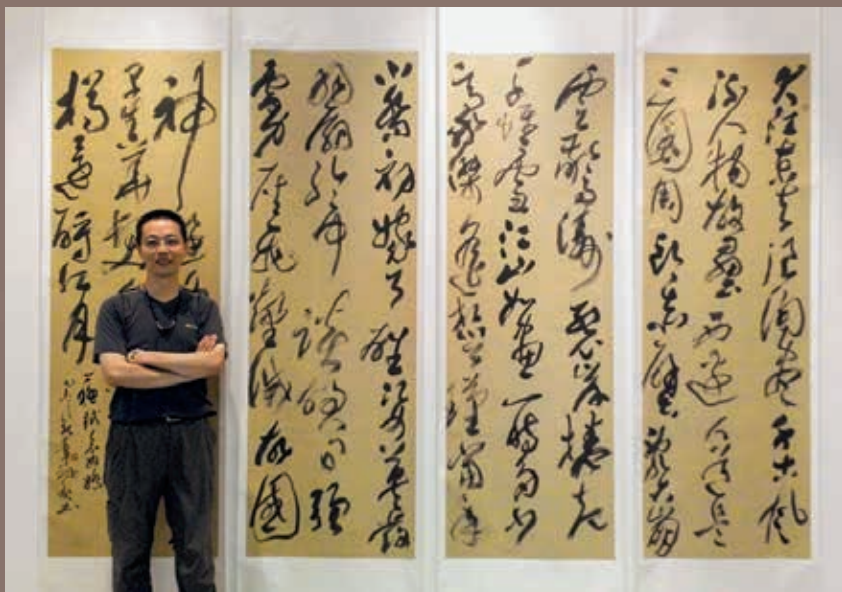 大江東去浪淘盡千古風
流人物故壘西邊人道是
三國周郎赤壁亂石崩
雲驚濤裂岸捲起
千堆雪江山如畫一時多少
豪傑遙想公瑾當年
小喬初嫁了雄姿英發
羽扇綸巾談笑間強
虜灰飛煙滅故國
神遊
早生華髮
樽還酹江月